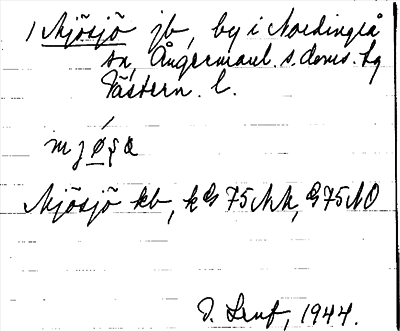 1 Mjösjö jb, by i Nordingrå
sn, Ångermanl. s. doms. hg
Västern. l.
Mjösjö kb, k G 75 NK, G 75 NO
1944.